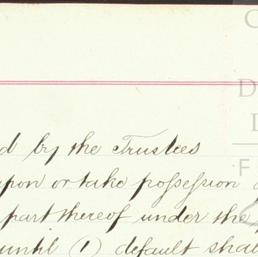 d by the Trustees
upon or take possession
part thereof under the
until (1) default shall
C
D
L
F